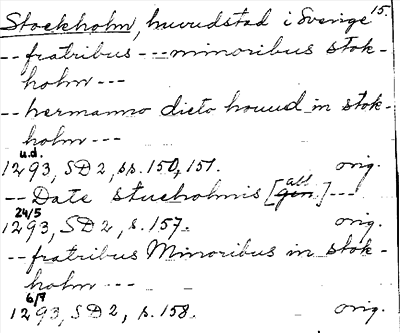 Stockholm, huvudstad i Sverige 15.
-- fratribus --- minoribus stok-
holm ---
-- hermanno dicto houud in stok-
holm ---
u.d.
1293, SD 2, ss. 150, 151. orig.
-- Date stucholmis [abl
gen] ---
24/5
1293, SD 2, s. 157. orig.
-- fratribus Minoribus in stok-
holm ---
6/7
1293, SD 2, s. 158. orig.